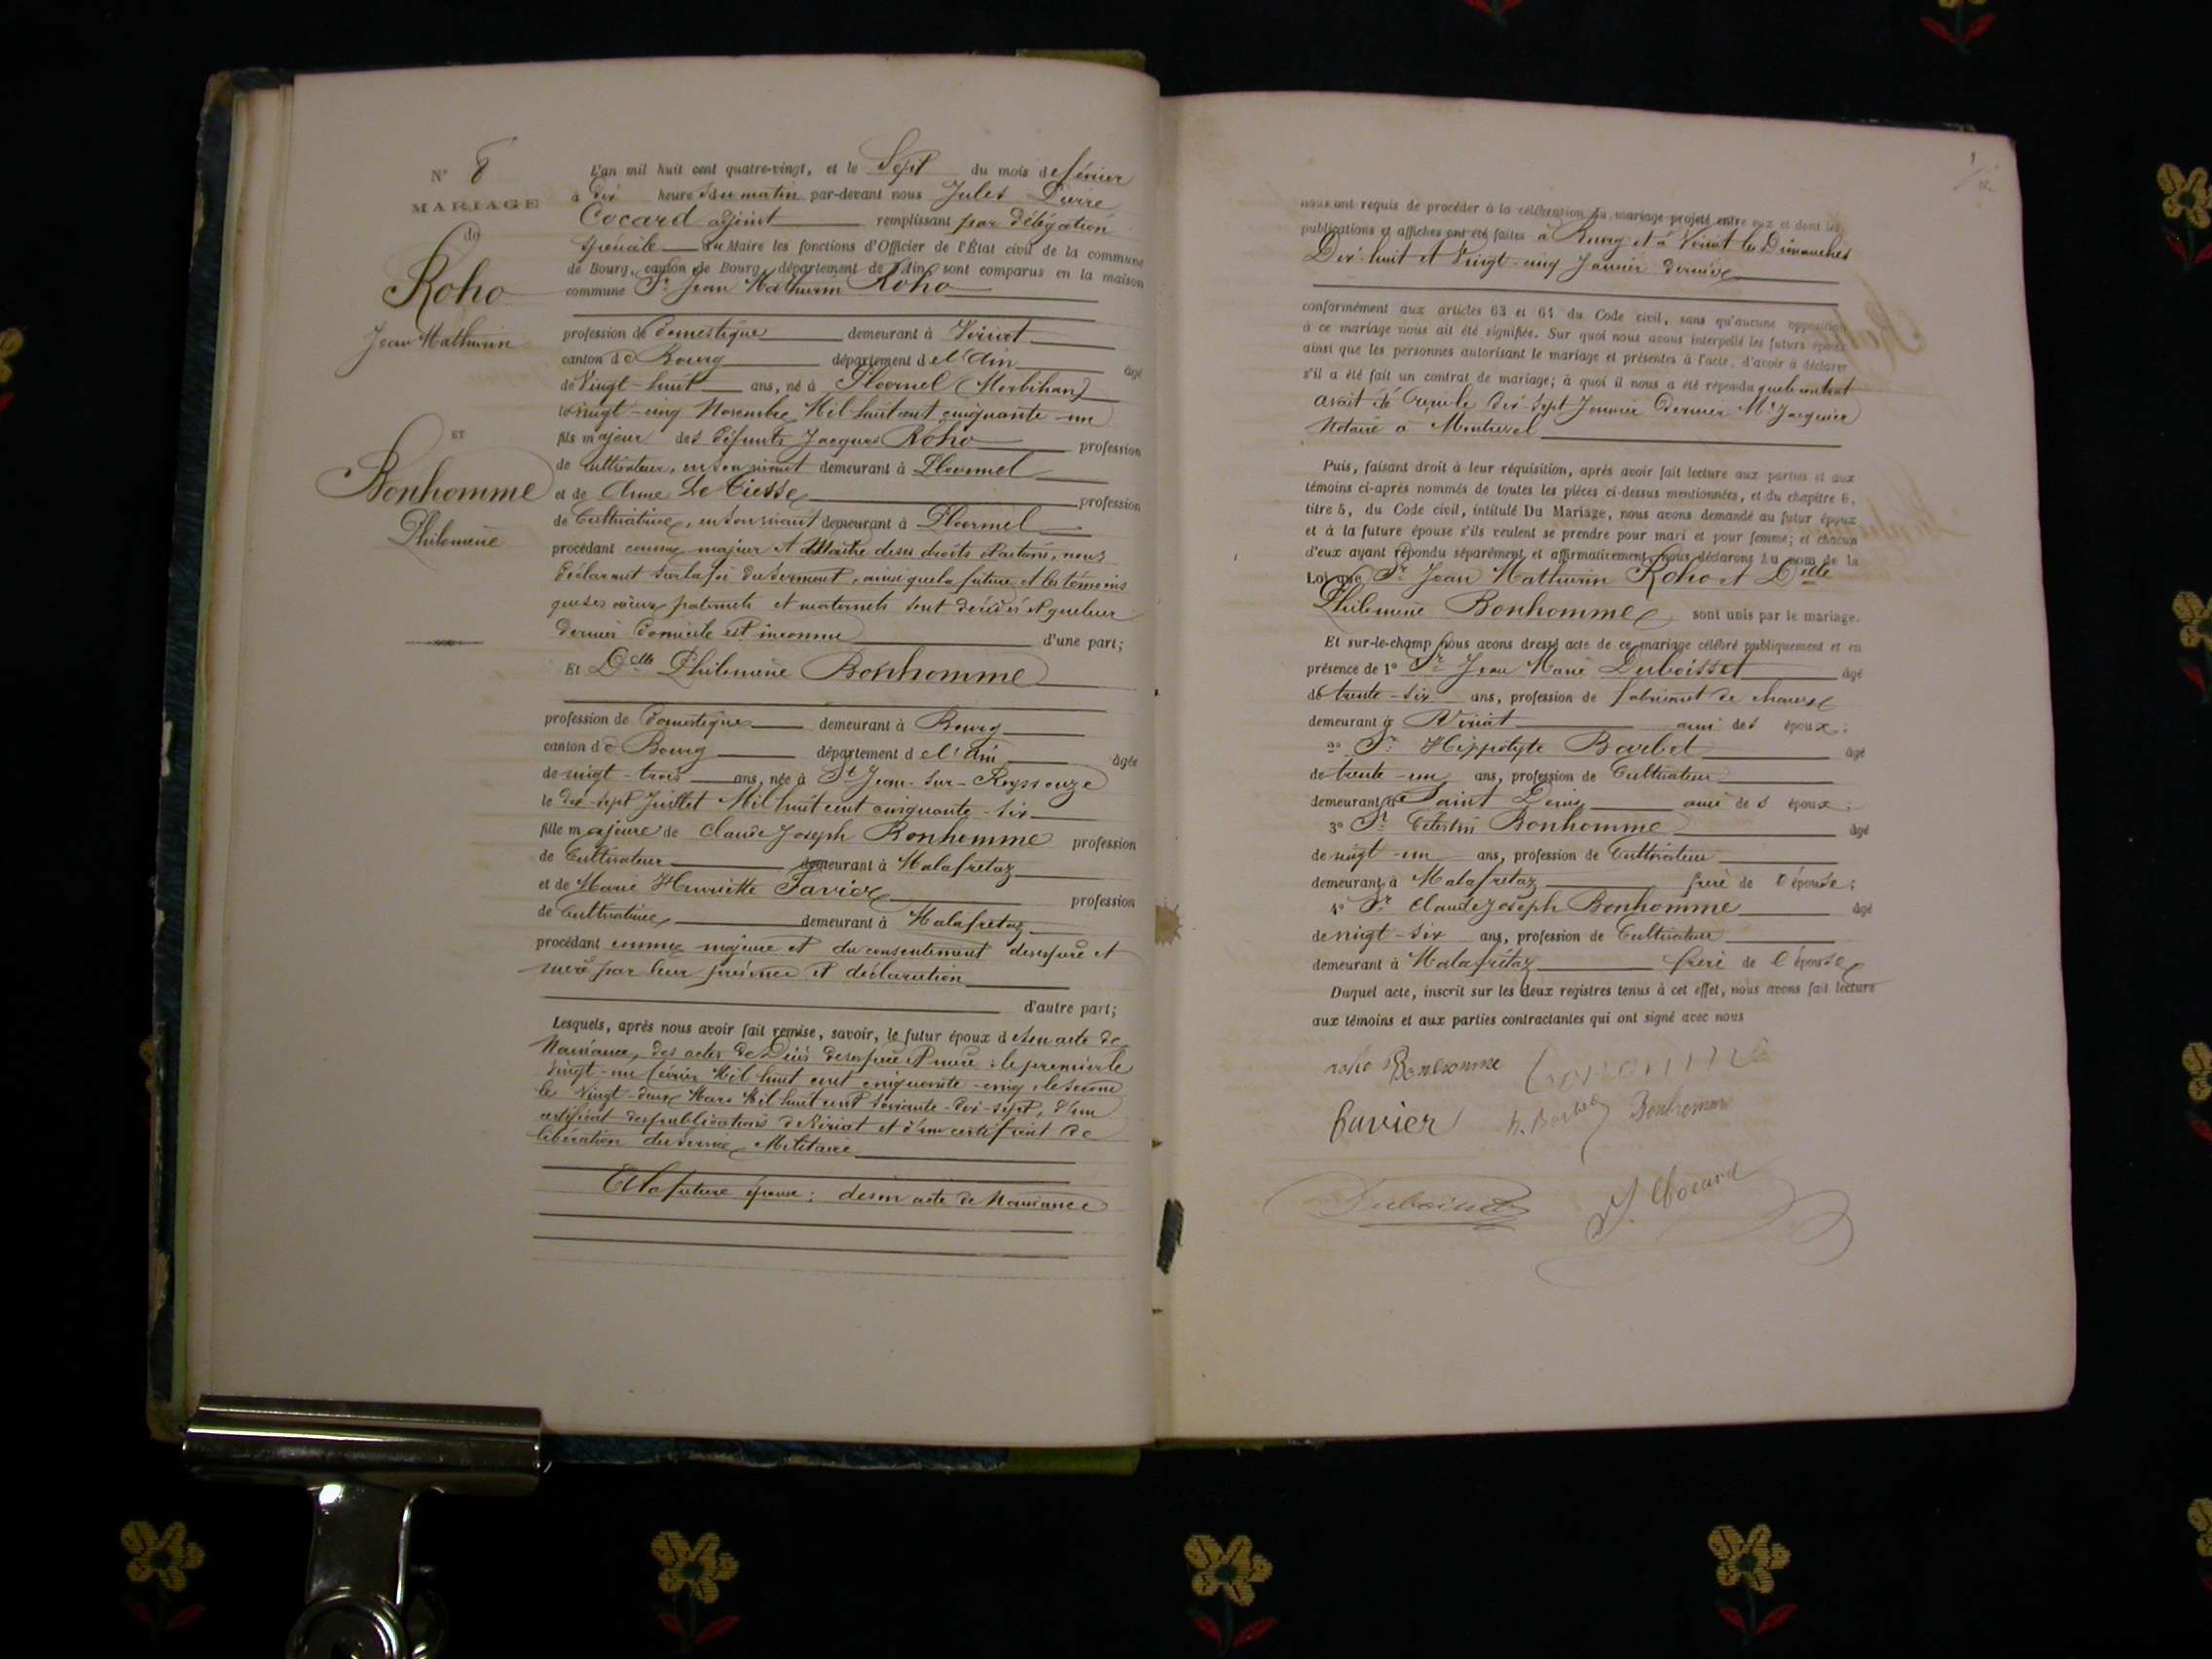 N° 8
MARIAGE
de
Roho
Jean Mathurin
ET
Bonhomme
Philomène
L'an mil huit cent quatre-vingt, et le Sept du mois de février
à dix heures du matin par-devant nous Jules Pierre
Cocard adjoint remplissant par délégation
spéciale du Maire les fonctions d'Officier de l'État civil de la commune
de Bourg, canton de Bourg, département de l'Ain, sont comparus en la maison
commune Sr Jean Mathurin Roho
profession de domestique demeurant à Viriat
canton de Bourg département de l'Ain âgé
de Vingt-huit ans, né à Ploërmel (Morbihan)
le vingt-cinq Novembre Mil huit cent cinquante-un
fils majeur des défunts Jacques Roho profession
de cultivateur, en son vivant demeurant à Ploërmel
et de Anne Le profession
de Cultivatrice, en son vivant demeurant à Ploërmel
procédant comme majeur et Maître de ses droits et actions, nous
déclarant sur la foi du serment, ainsi que la future et les témoins
que ses aïeux paternels et maternels sont décédés et que leur
dernier domicile est inconnu d'une part;
Et Delle Philomène Bonhomme
profession de domestique demeurant à Bourg
canton de Bourg département de l'Ain âgée
de vingt-trois ans, née à St Jean-sur-Reyssouze
le dix-sept Juillet Mil huit cent cinquante-six
fille majeure de Claude Joseph Bonhomme profession
de Cultivateur demeurant à Malafretaz
et de Marie Henriette Favier profession
de Cultivatrice demeurant à Malafretaz
procédant comme majeure et du consentement de ses père et
mère par leur présence et déclaration
d'autre part;
Lesquels, après nous avoir fait remise, savoir, le futur époux de son acte de
Naissance, des actes de Décès de ses père et mère : le premier le
vingt-un février Mil huit cent cinquante-cinq, le second
le Vingt-deux Mars Mil huit cent soixante-dix-sept, d'un
certificat des publications de Viriat et d'un certificat de
libération du service Militaire
Et la future épouse : de son acte de Naissance
nous ont requis de procéder à la célébration du mariage projeté entre eux et dont les
publications et affiches ont été faites à Bourg et à Viriat les Dimanches
Dix-huit et Vingt-cinq Janvier dernier
conformément aux articles 63 et 64 du Code civil, sans qu'aucune opposition
à ce mariage nous ait été signifiée. Sur quoi nous avons interpellé les futurs époux
ainsi que les personnes autorisant le mariage et présentes à l'acte, d'avoir à déclarer
s'il a été fait un contrat de mariage; à quoi il nous a été répondu que le contrat
avait été reçu le dix-sept Janvier dernier Me Jacquier
Notaire à Montrevel
Puis, faisant droit à leur réquisition, après avoir fait lecture aux parties et aux
témoins ci-après nommés de toutes les pièces ci-dessus mentionnées, et du chapitre 6,
titre 5, du Code civil, intitulé Du Mariage, nous avons demandé au futur époux
et à la future épouse s'ils veulent se prendre pour mari et pour femme; et chacun
d'eux ayant répondu séparément et affirmativement, nous déclarons Au nom de la
Loi que Sr Jean Mathurin Roho et Delle
Philomène Bonhomme sont unis par le mariage.
Et sur-le-champ nous avons dressé acte de ce mariage célébré publiquement et en
présence de 1° Sr Jean Marie Duboisset âgé
de trente-six ans, profession de fabricant de chaux
demeurant à Viriat ami des époux;
2° Sr Hippolyte Barbet âgé
de trente-un ans, profession de Cultivateur
demeurant à Saint Denis ami des époux;
3° Sr Célestin Bonhomme âgé
de vingt-un ans, profession de Cultivateur
demeurant à Malafretaz frère de l'épouse;
4° Sr Claude Joseph Bonhomme âgé
de vingt-six ans, profession de Cultivateur
demeurant à Malafretaz frère de l'épouse
Duquel acte, inscrit sur les deux registres tenus à cet effet, nous avons fait lecture
aux témoins et aux parties contractantes qui ont signé avec nous
roho Bonhomme
favier h. Barbet Bonhomme
Duboisset J. Cocard